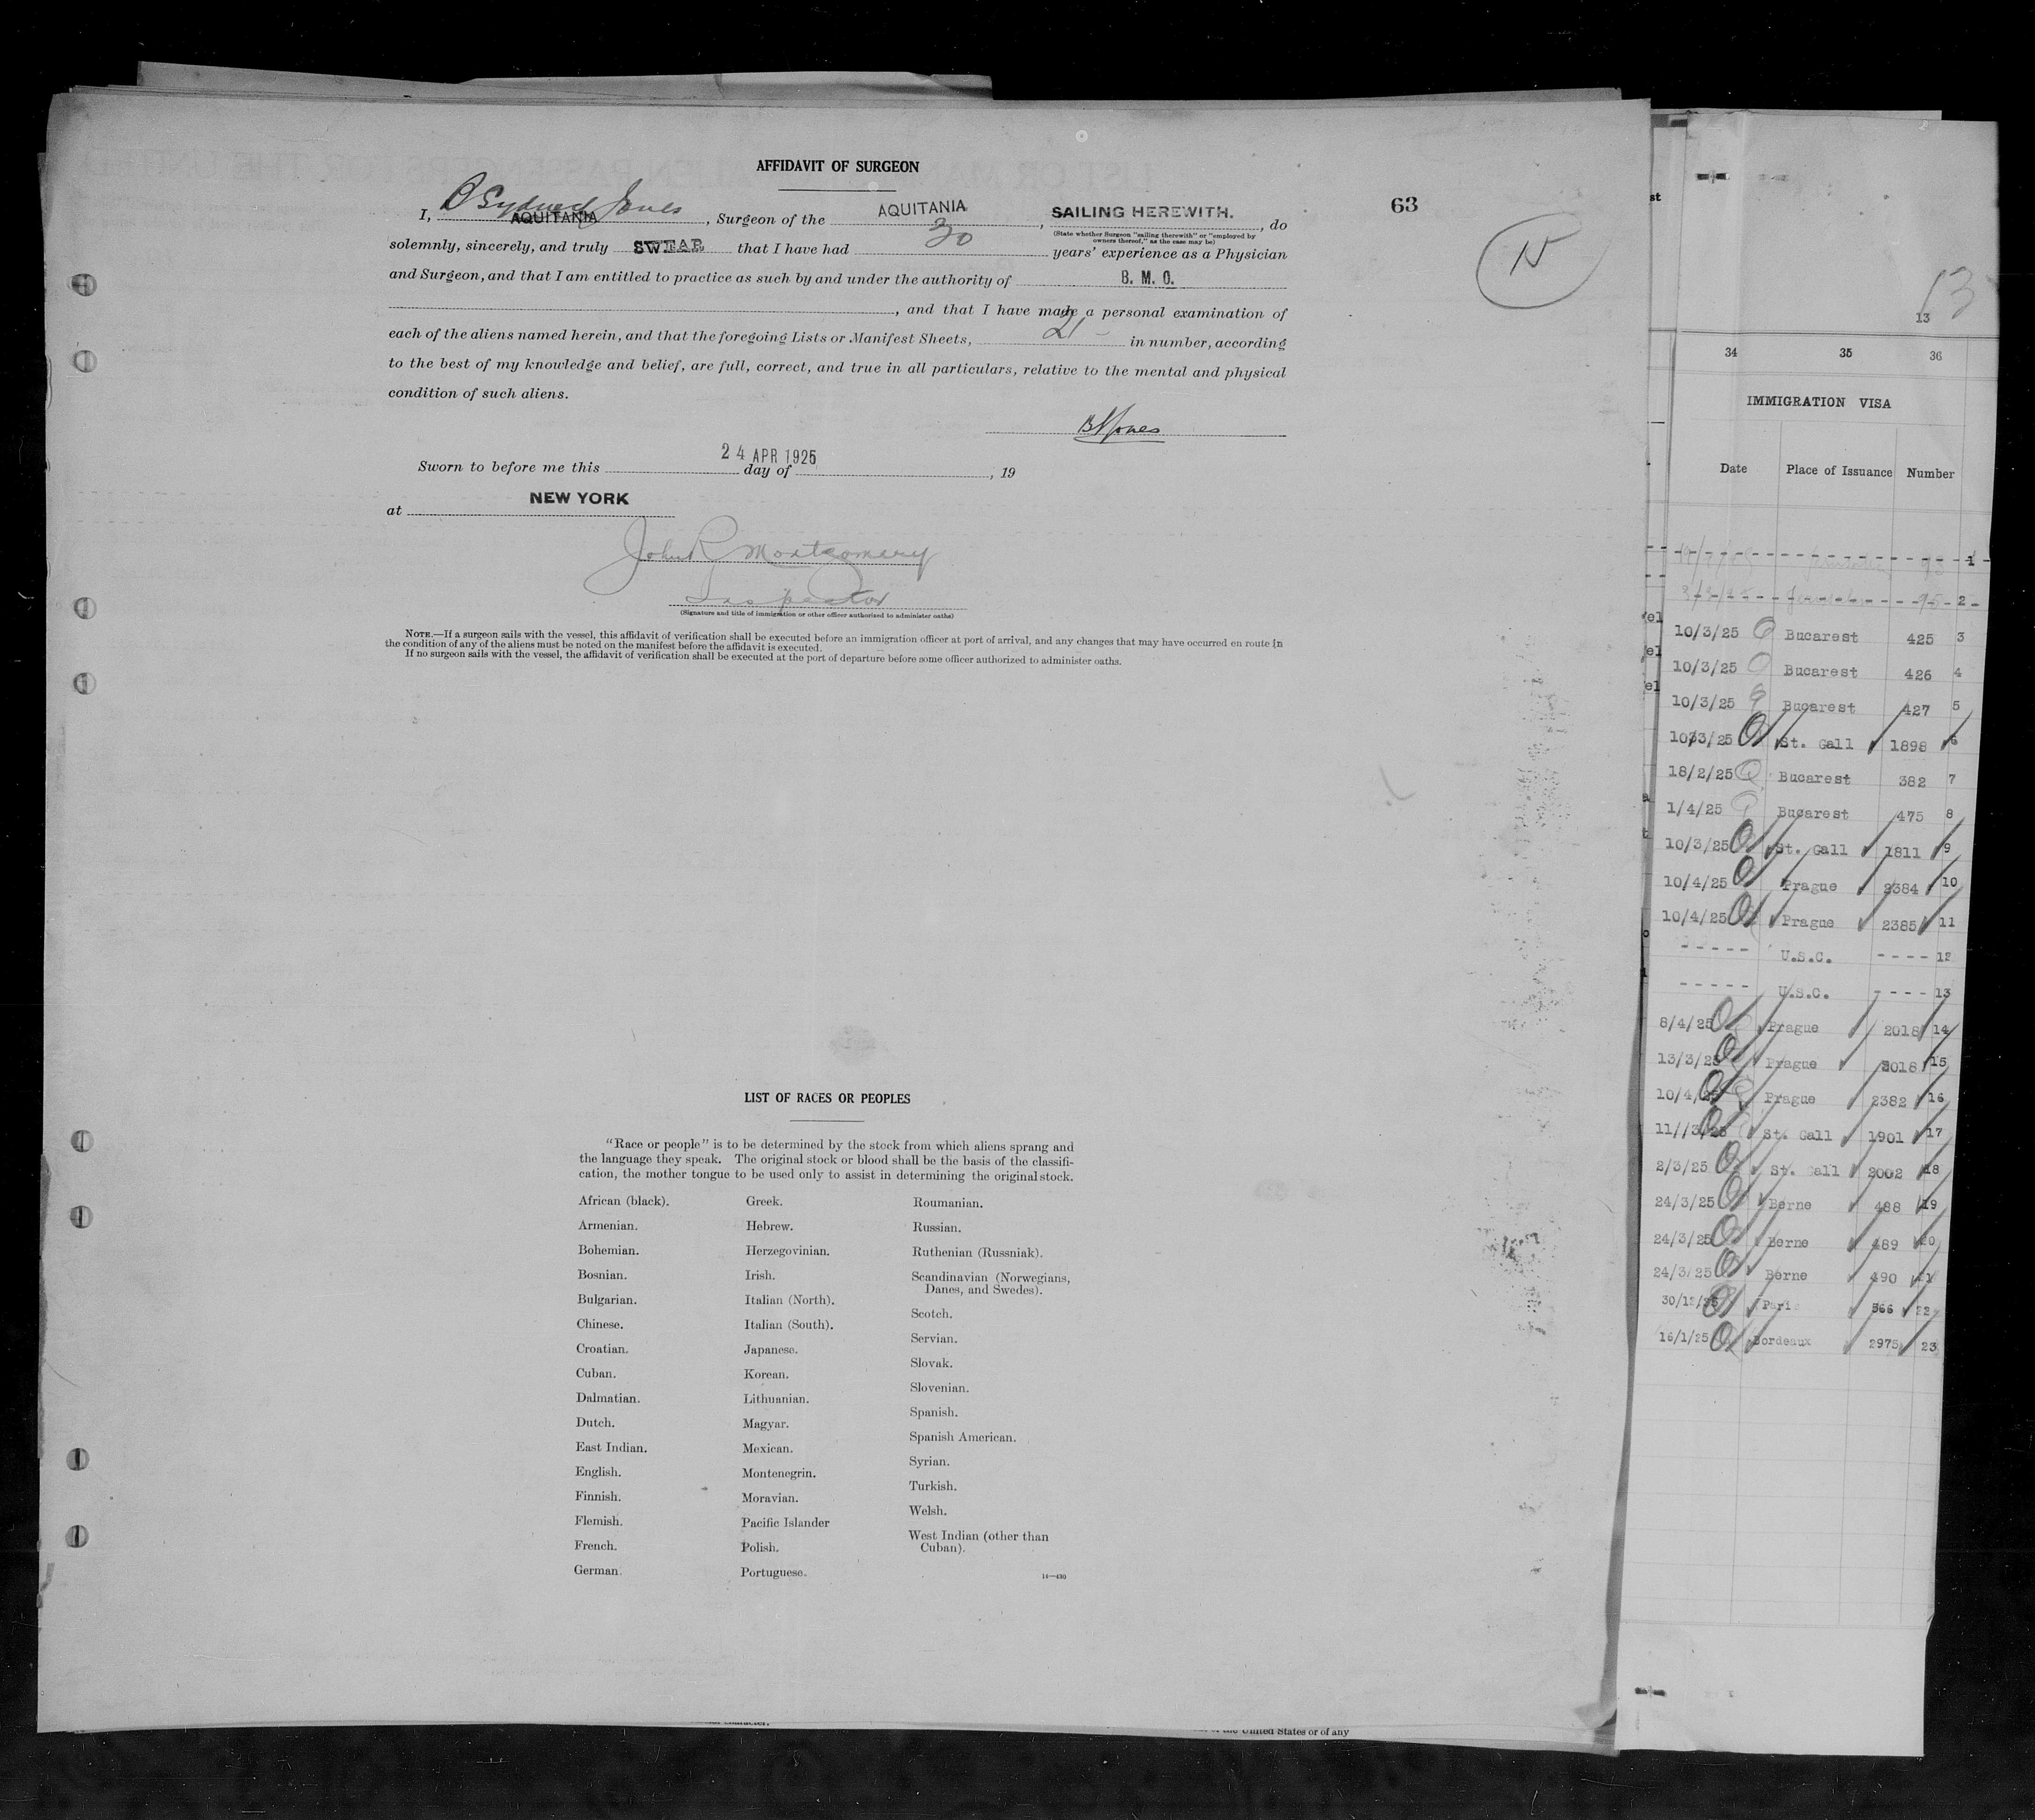 AFFIDAVIT OF SURGEON
I, B Sydney Jones AQUITANIA, Surgeon of the AQUITANIA, SAILING HEREWITH., do
(State whether Surgeon "sailing therewith" or "employed by
owners thereof," as the case may be)
63
15
solemnly, sincerely, and truly SWEAR that I have had 30 years' experience as a Physician
and Surgeon, and that I am entitled to practice as such by and under the authority of B. M. O.
, and that I have made a personal examination of
each of the aliens named herein, and that the foregoing Lists or Manifest Sheets, 21 - in number, according
to the best of my knowledge and belief, are full, correct, and true in all particulars, relative to the mental and physical
condition of such aliens.
BSJones
Sworn to before me this 24 APR 1925 day of , 19
at NEW YORK
John R Montgomery
Inspector
(Signature and title of immigration or other officer authorized to administer oaths)
NOTE.—If a surgeon sails with the vessel, this affidavit of verification shall be executed before an immigration officer at port of arrival, and any changes that may have occurred en route in
the condition of any of the aliens must be noted on the manifest before the affidavit is executed.
If no surgeon sails with the vessel, the affidavit of verification shall be executed at the port of departure before some officer authorized to administer oaths.
LIST OF RACES OR PEOPLES
"Race or people" is to be determined by the stock from which aliens sprang and
the language they speak. The original stock or blood shall be the basis of the classifi-
cation, the mother tongue to be used only to assist in determining the original stock.
African (black).
Armenian.
Bohemian.
Bosnian.
Bulgarian.
Chinese.
Croatian.
Cuban.
Dalmatian.
Dutch.
East Indian.
English.
Finnish.
Flemish.
French.
German.
Greek.
Hebrew.
Herzegovinian.
Irish.
Italian (North).
Italian (South).
Japanese.
Korean.
Lithuanian.
Magyar.
Mexican.
Montenegrin.
Moravian.
Pacific Islander
Polish.
Portuguese.
Roumanian.
Russian.
Ruthenian (Russniak).
Scandinavian (Norwegians,
Danes, and Swedes).
Scotch.
Servian.
Slovak.
Slovenian.
Spanish.
Spanish American.
Syrian.
Turkish.
Welsh.
West Indian (other than
Cuban).
14—430
of the United States or of any
13
13
34 35 36
IMMIGRATION VISA
Date Place of Issuance Number
95 1
95 2
10/3/25 Bucarest 425 3
10/3/25 Bucarest 426 4
10/3/25 Bucarest 427 5
10/3/25 St. Gall 1898 6
18/2/25 Bucarest 382 7
1/4/25 Bucarest 475 8
10/3/25 St. Gall 1811 9
10/4/25 Prague 2384 10
10/4/25 Prague 2385 11
----- U.S.C. ---- 12
----- U.S.C. ---- 13
8/4/25 Prague 2018 14
13/3/25 Prague 2018 15
10/4/25 Prague 2382 16
11//3/25 St. Gall 1901 17
2/3/25 St. Gall 2002 18
24/3/25 Berne 488 19
24/3/25 Berne 489 20
24/3/25 Berne 490 21
30/12/25 Paris 566 22
16/1/25 Bordeaux 2975 23